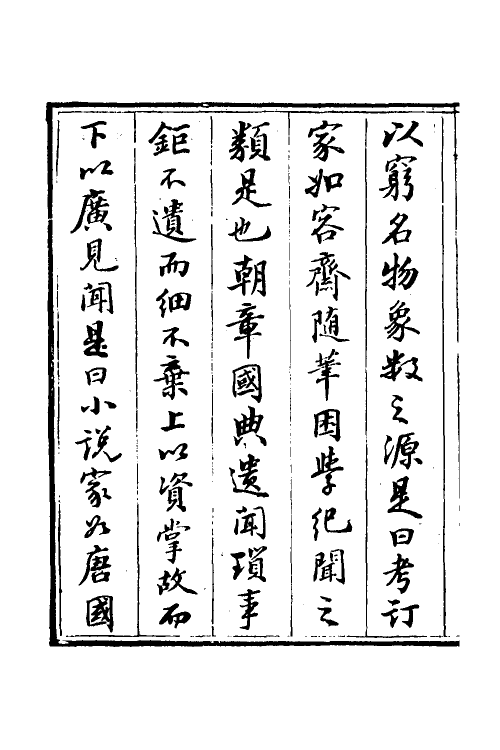 以窮名物象数之源是曰考订
家如容齋随筆困学纪聞之
類是也朝章國典遺聞瑣事
鉅不遺而细不棄上以資掌故而
下以廣見闻是曰小说家如唐國